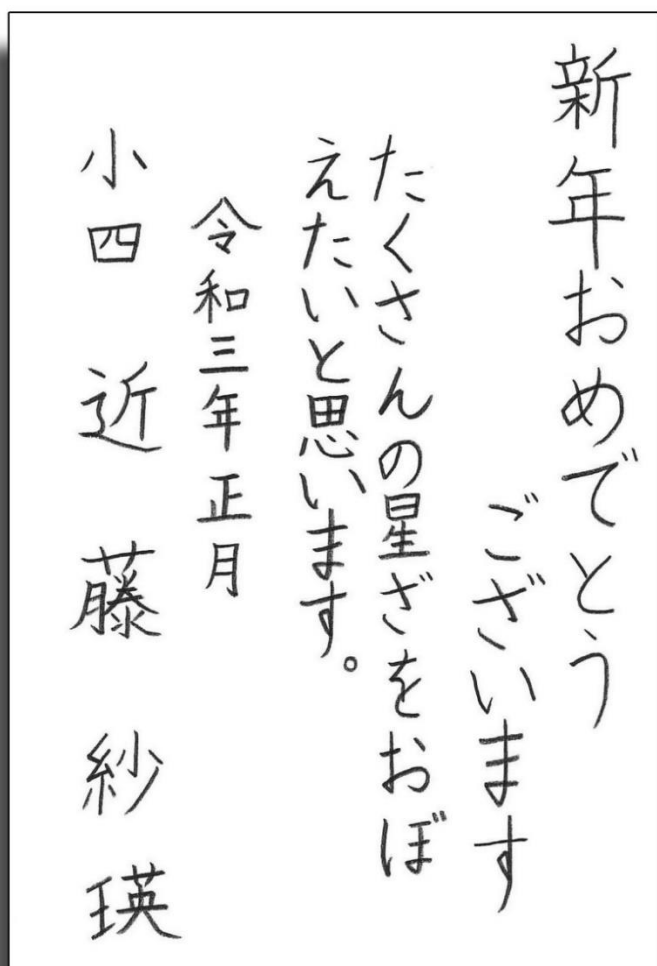 新年おめでとう
ございます
たくさんの星ざをおぼ
えたいと思います。
令和三年正月
小四 近藤紗瑛